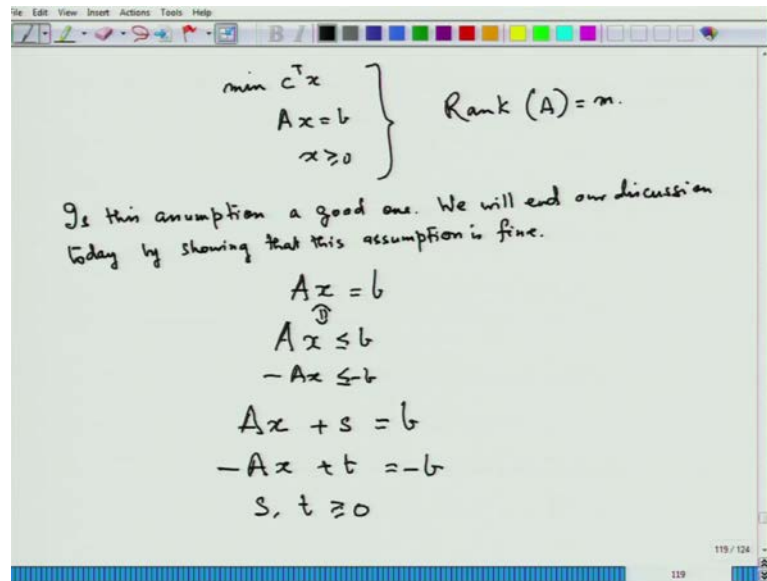 File Edit View Insert Actions Tools Help
min cᵀx
Ax = b
x ≥ 0
Rank (A) = m.
Is this assumption a good one. We will end our discussion
today by showing that this assumption is fine.
Ax = b
⇕
Ax ≤ b
-Ax ≤ -b
Ax + s = b
-Ax + t = -b
s, t ≥ 0
119 / 124
119